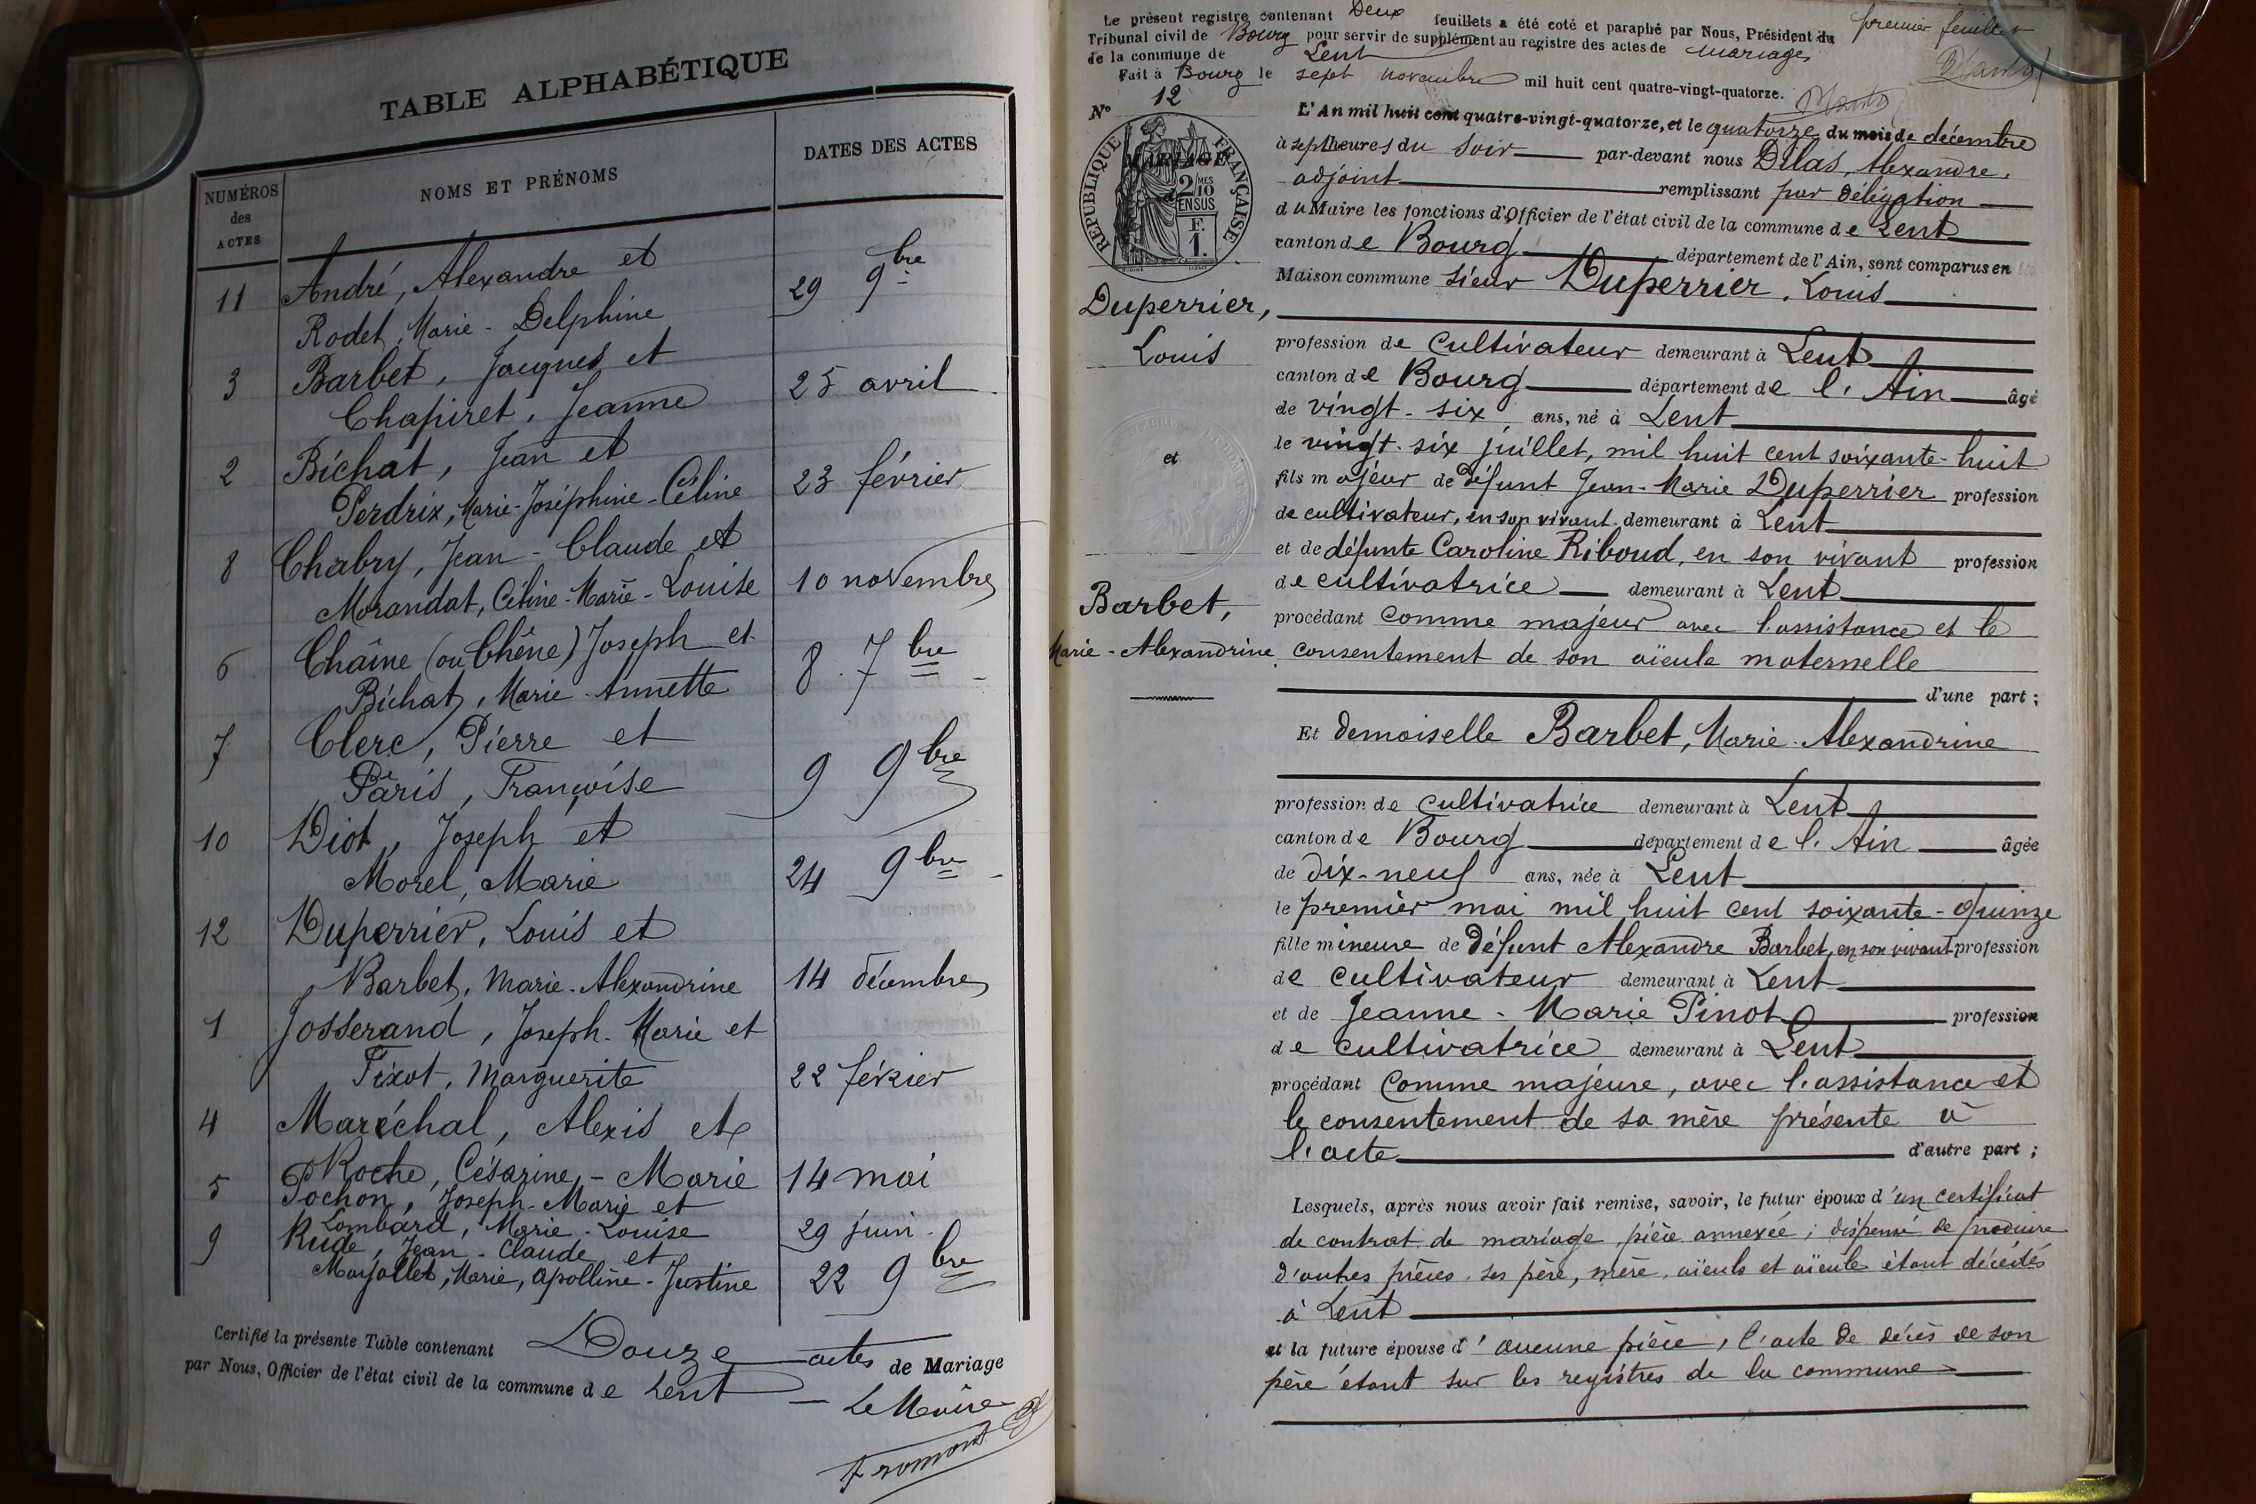 TABLE ALPHABÉTIQUE
NUMÉROS des ACTES
NOMS ET PRÉNOMS
DATES DES ACTES
11 André, Alexandre et
Rodet, Marie-Delphine 29 9bre
3 Barbet, Jacques et
Chapiret, Jeanne 25 avril
2 Bichat, Jean et
Perdrix, Marie-Joséphine-Céline 23 février
8 Chabry, Jean-Claude et
Morandat, Céline-Marie-Louise 10 novembre
6 Chaîne (ou Chêne) Joseph et
Bichat, Marie-Annette 8 7bre
7 Clerc, Pierre et
Pâris, Françoise 9 9bre
10 Diot, Joseph et
Morel, Marie 24 9bre
12 Duperrier, Louis et
Barbet, Marie-Alexandrine 14 décembre
1 Josserand, Joseph-Marie et
Tixot, Marguerite 22 février
4 Maréchal, Alexis et
Roche, Césarine-Marie 14 mai
5 Pochon, Joseph-Marie et
Lombard, Marie-Louise 29 juin
9 Rude, Jean-Claude et
Marie, Apolline-Justine 22 9bre
Certifié la présente Table contenant Douze actes de Mariage
par Nous, Officier de l'état civil de la commune de Lent
Le Maire
Fromont
Le présent registre contenant Deux feuillets a été coté et paraphé par Nous, Président du
Tribunal civil de Bourg pour servir de supplément au registre des actes de mariages
de la commune de Lent
Fait à Bourg le sept novembre mil huit cent quatre-vingt-quatorze.
premier feuillet
N° 12
RÉPUBLIQUE FRANÇAISE
MARIAGE
2 MES
10
EN SUS
F.
1.
Duperrier,
Louis
et
Barbet,
Marie-Alexandrine
L'An mil huit cent quatre-vingt-quatorze, et le quatorze du mois de décembre
à sept heures du soir par-devant nous Dilas, Alexandre,
adjoint remplissant par délégation
du Maire les fonctions d'Officier de l'état civil de la commune de Lent
canton de Bourg département de l'Ain, sont comparus en la
Maison commune sieur Duperrier, Louis
profession de cultivateur demeurant à Lent
canton de Bourg département de l'Ain âgé
de vingt-six ans, né à Lent
le vingt-six juillet, mil huit cent soixante-huit
fils majeur de défunt Jean-Marie Duperrier profession
de cultivateur, en son vivant demeurant à Lent
et de défunte Caroline Riboud, en son vivant profession
de cultivatrice demeurant à Lent
procédant comme majeur avec l'assistance et le
consentement de son aïeule maternelle
d'une part;
Et demoiselle Barbet, Marie-Alexandrine
profession de cultivatrice demeurant à Lent
canton de Bourg département de l'Ain âgée
de dix-neuf ans, née à Lent
le premier mai mil huit cent soixante-quinze
fille mineure de défunt Alexandre Barbet, en son vivant profession
de cultivateur demeurant à Lent
et de Jeanne-Marie Pinot profession
de cultivatrice demeurant à Lent
procédant comme majeure, avec l'assistance et
le consentement de sa mère présente à
l'acte d'autre part;
Lesquels, après nous avoir fait remise, savoir, le futur époux d'un certificat
de contrat de mariage, pièce annexée; dispensé de produire
d'autres pièces, ses père, mère, aïeuls et aïeule étant décédés
à Lent
et la future épouse d'aucune pièce, l'acte de décès de son
père étant sur les registres de la commune